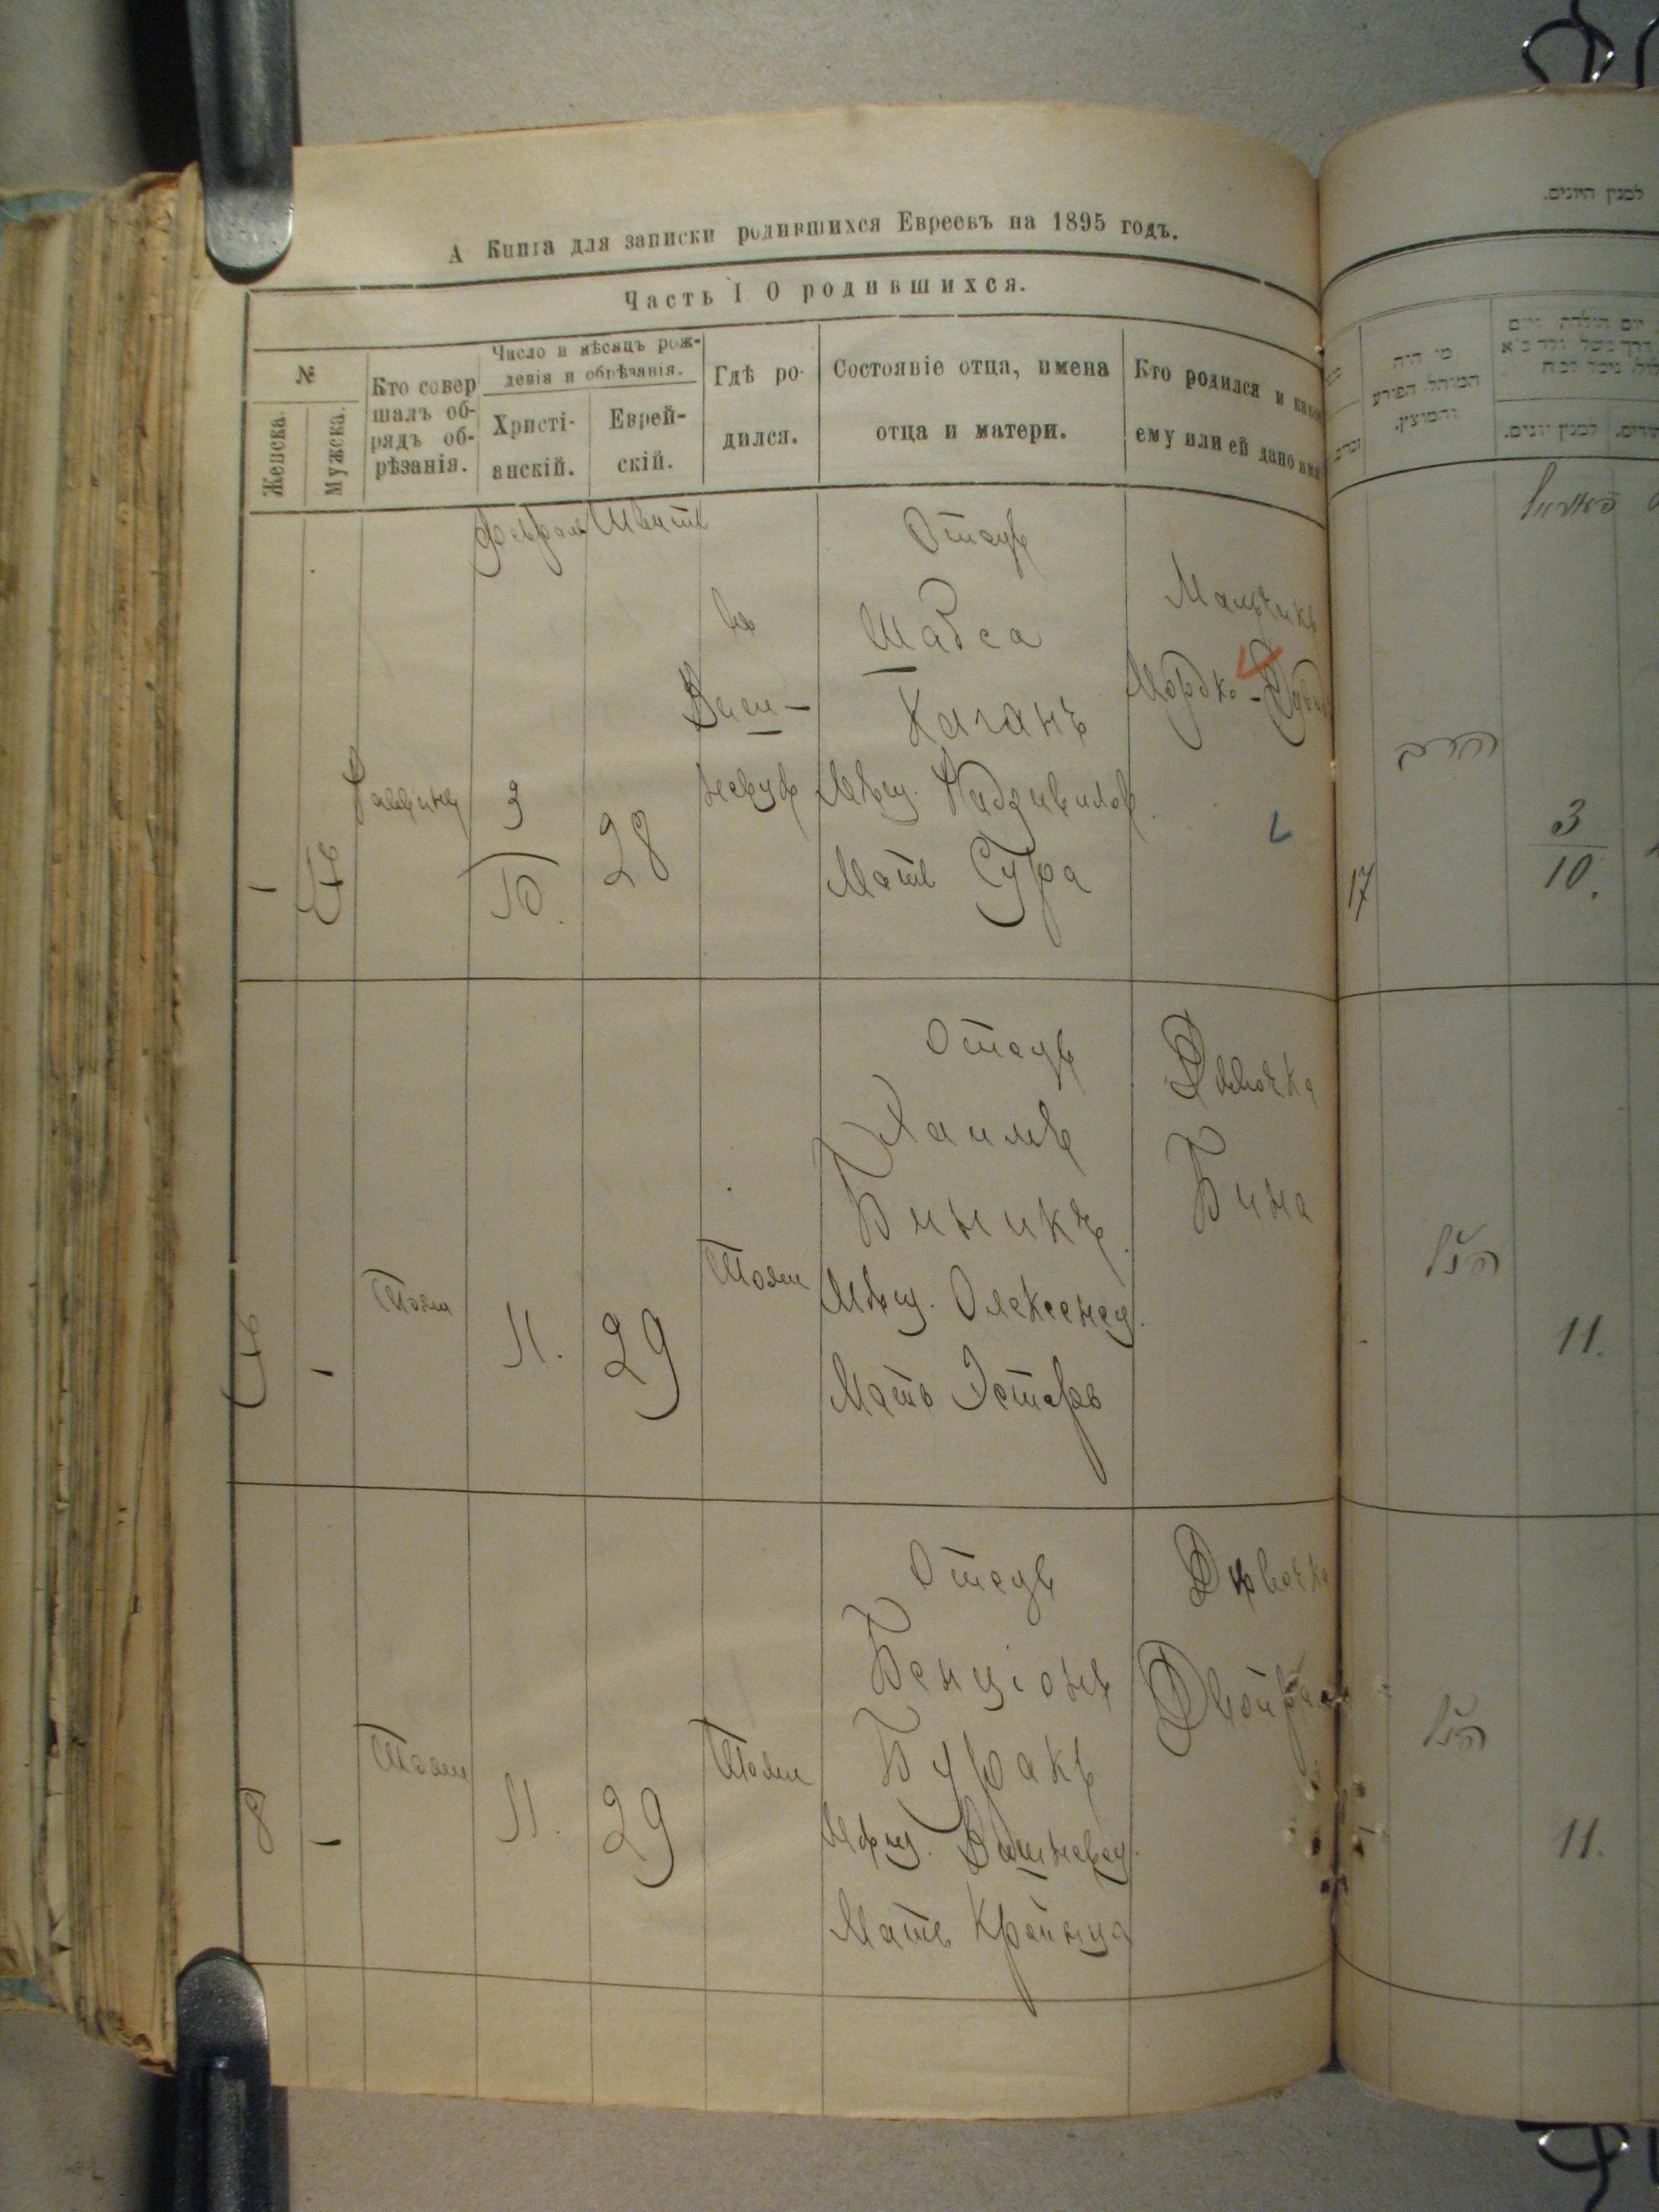 А Книга для записки родившихся Евреевъ на 1895 годъ.
Часть I О родившихся.
№
Женска.
Мужска.
Кто совер
шалъ об-
рядъ об-
рѣзанія.
Число и мѣсяцъ рож-
денія и обрѣзанія.
Христі-
анскій.
Еврей-
скій.
Гдѣ ро-
дился.
Состояніе отца, имена
отца и матери.
Кто родился и какое
ему или ей дано имя
Февраль
Шватъ
-
Раввинъ
3
10.
28
въ
Виш-
невцѣ
Отецъ
Шабса
Каганъ
Мѣщ. Радзивилов.
Мать Сура
Мальчикъ
Мордко-
-
Тоже
11.
29
Тоже
Отецъ
Хаимъ
Биникъ
Мѣщ. Олексенец.
Мать Эстеръ
Дѣвочка
Бина
8
-
Тоже
11.
29
Тоже
Отецъ
Бенціонъ
Буракъ
Мѣщ. Вишневец.
Мать Кройнца
Дѣвочка
Двойра
למנין היונים.
מי היה
המוהל הפורע
והמוצץ.
למנין יונים.
17
הרב
3
10.
הנ״ל
11.
הנ״ל
11.